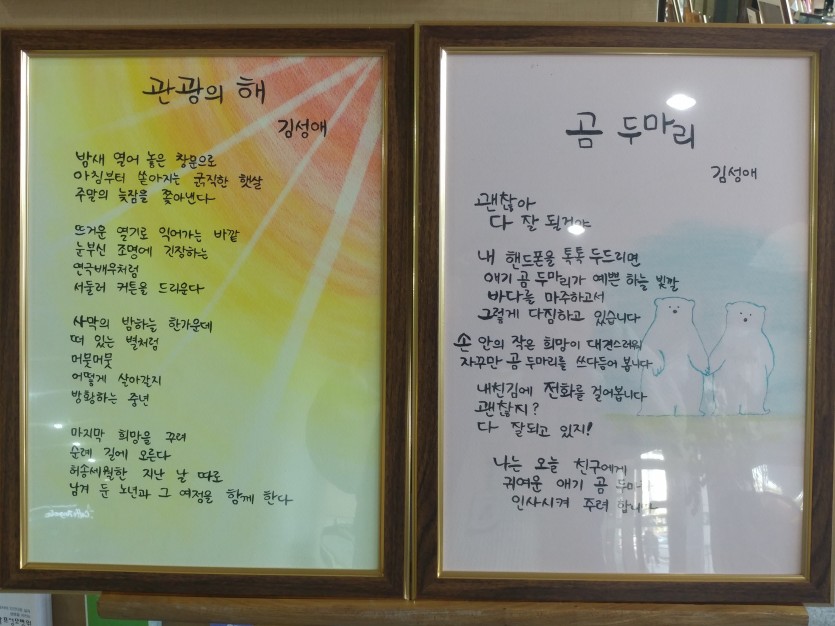 관광의 해
김성애
밤새 열어 놓은 창문으로
아침부터 쏟아지는 굵직한 햇살
주말의 늦잠을 쫓아낸다
뜨거운 열기로 익어가는 바깥
눈부신 조명에 긴장하는
연극배우처럼
서둘러 커튼을 드리운다
사막의 밤하늘 한가운데
떠 있는 별처럼
머뭇머뭇
어떻게 살아갈지
방황하는 중년
마지막 희망을 꾸려
순례 길에 오른다
허송세월한 지난 날 따로
남겨 둔 노년과 그 여정을 함께 한다
곰 두마리
김성애
괜찮아
다 잘 될거야
내 핸드폰을 톡톡 두드리면
애기 곰 두마리가 예쁜 하늘 빛깔
바다를 마주하고서
그렇게 다짐하고 있습니다
손 안의 작은 희망이 대견스러워
자꾸만 곰 두마리를 쓰다듬어 봅니다
내친김에 전화를 걸어봅니다
괜찮지?
다 잘되고 있지!
나는 오늘 친구에게
귀여운 애기 곰
인사시켜 주려 합니다